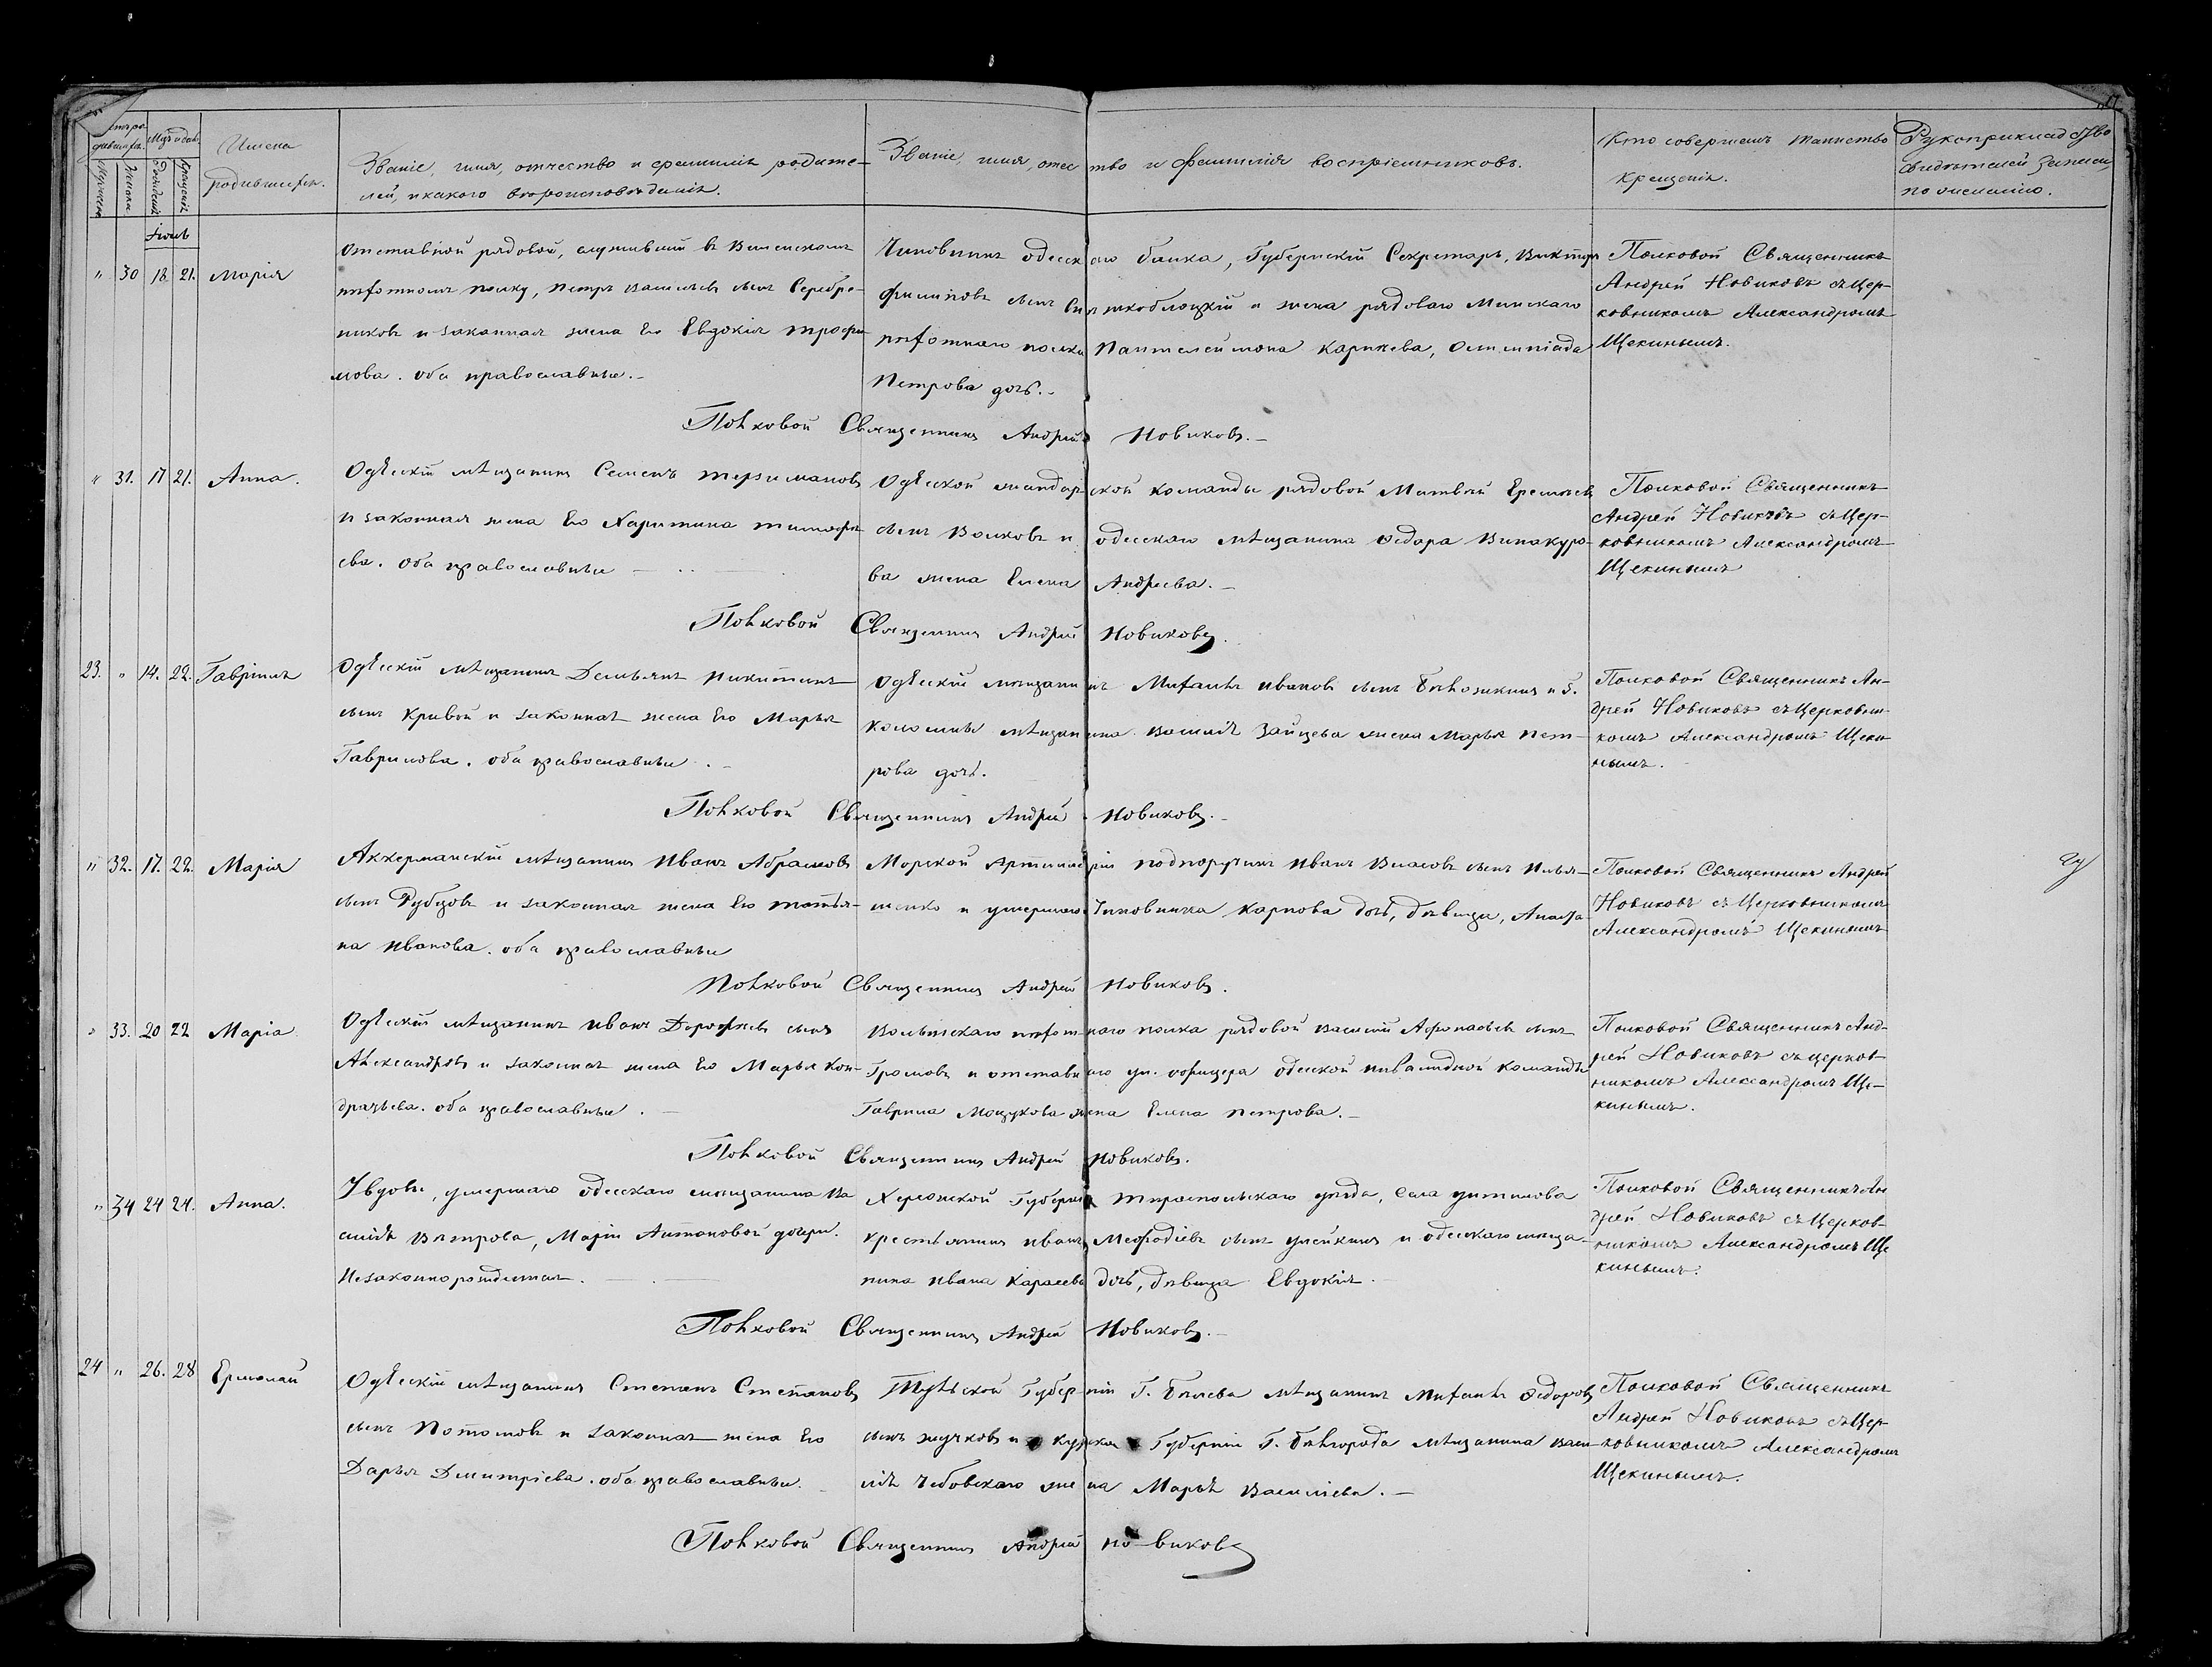 Имена родившихся.
Званіе, имя, отчество и фамилія родите-
лей, и какого вѣроисповѣданія.
Званіе, имя, отчество и фамилія воспріемниковъ.
Кто совершалъ таинство
крещенія.
Рукоприкладство
свидѣтелей записи
по желанію.
„ 30 18 21. Марія
Отставной рядовой, служившій въ Виленскомъ
пѣхотномъ полку, Петръ Васильевъ сынъ Серебре-
никовъ и законная жена его Евдокія Трофи-
мова. оба православные.
Чиновникъ одесскаго банка, Губернскій Секретарь, Викторъ
Филиповъ сынъ и жена рядоваго Минскаго
пѣхотнаго полка Пантелеимона Карпеева, Олимпіада
Петрова дочь.
Полковой Священникъ
Андрей Новиковъ съ Цер-
ковникомъ Александромъ
Щекинымъ.
Полковой Священникъ Андрей Новиковъ.
„ 31. 17 21. Анна.
Одесскій мѣщанинъ Семенъ
и законная жена его Харитина Тимофѣ-
ева. оба православные
Одесской жандармской команды рядовой Матвѣй Еремѣевъ
сынъ Волковъ и одесскаго мѣщанина Ѳедора Винакуро-
ва жена Елена Андреева.
Полковой Священникъ
Андрей Новиковъ съ Цер-
ковникомъ Александромъ
Щекинымъ
Полковой Священникъ Андрей Новиковъ.
23. „ 14. 22. Гавріилъ
Одесскій мѣщанинъ Демьянъ Никитинъ
сынъ Кривой и законная жена его Марья
Гаврилова. оба православные.
Одесскій мѣщанинъ Михаилъ Ивановъ сынъ и г.
Коломны мѣщанина Василія Зайцева жена Марья Пет-
рова дочь.
Полковой Священникъ Ан-
дрей Новиковъ съ Церковни-
комъ Александромъ Щеки-
нымъ.
Полковой Священникъ Андрей Новиковъ.
„ 32. 17. 22. Марія
Аккерманскій мѣщанинъ Иванъ Абрамовъ
сынъ Рубцовъ и законная жена его Татья-
на Иванова. оба православные
Морской Артиллеріи подпоручикъ Иванъ Власовъ сынъ Илья-
шенко и умершаго Чиновника Карпова дочь, дѣвица,
Полковой Священникъ Андрей
Новиковъ съ Церковникомъ
Александромъ Щекинымъ
Полковой Священникъ Андрей Новиковъ.
„ 33. 20 22 Марія
Одесскій мѣщанинъ Иванъ Дорофѣевъ сынъ
Александровъ и законная жена его Марья Кон-
дратьева. оба православные.
Волынскаго пѣхотнаго полка рядовой Василій Афонасьевъ сынъ
Громовъ и отставнаго ун. офицера одесской инвалидной команды
Гаврила Моцукова жена Елена Петрова.
Полковой Священникъ Анд-
рей Новиковъ съ церков-
никомъ Александромъ Ще-
кинымъ.
Полковой Священникъ Андрей Новиковъ.
„ 34 24 24. Анна.
У вдовы, умершаго одесскаго мѣщанина Ва-
силія Вѣтрова, Маріи Антоновой дочери.
Незаконнорожденная.
Херсонской Губерніи Тираспольскаго уѣзда, села
крестьянинъ Иванъ Меѳодіевъ сынъ и одесскаго мѣща-
нина Ивана Карасева дочь, дѣвица Евдокія.
Полковой Священникъ Ан
дрей Новиковъ съ Церков-
никомъ Александромъ Ще
кинымъ.
Полковой Священникъ Андрей Новиковъ.
24 „ 26. 28 Ермолай
Одесскій мѣщанинъ Степанъ Степановъ
сынъ Потоповъ и законная жена его
Дарья Дмитріева. оба православные.
Тульской Губерніи Г. Бѣлева мѣщанинъ Михаилъ Ѳедоровъ
сынъ Жучковъ и Курской Губерніи Г. Бѣлгорода мѣщанина Васи-
лія Чебовскаго жена Марья Василіева.
Полковой Священникъ
Андрей Новиковъ съ Цер-
ковникомъ Александромъ
Щекинымъ.
Полковой Священникъ Андрей Новиковъ